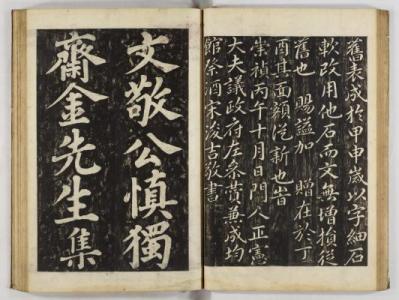 舊表成於甲申歲以字細石
軟改用他石而文無增損從
舊也 賜謚加 贈在於丁
酉其面額從新也旹
崇禎丙午十月日門人正憲
大夫議政府左參贊兼成均
館祭酒宋浚吉敬書
文敬公慎獨
齋金先生集